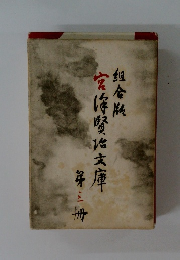 組合版
宮澤賢治文庫
第三冊